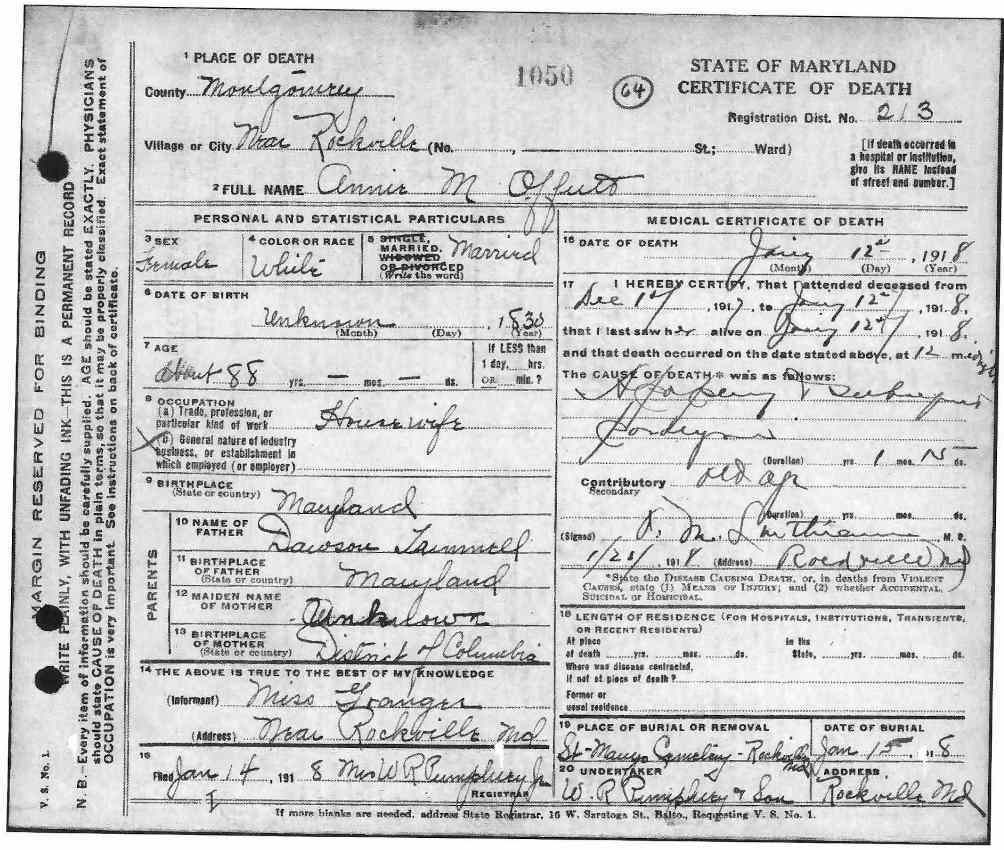 MARGIN RESERVED FOR BINDING
WRITE PLAINLY, WITH UNFADING INK—THIS IS A PERMANENT RECORD
N. B.—Every item of information should be carefully supplied. AGE should be stated EXACTLY. PHYSICIANS
should state CAUSE OF DEATH in plain terms, so that it may be properly classified. Exact statement of
OCCUPATION is very important. See instructions on back of certificate.
V. S. No. 1.
1 PLACE OF DEATH
County Montgomery
1050
64
STATE OF MARYLAND
CERTIFICATE OF DEATH
Registration Dist. No. 213
Village or City Near Rockville (No. , St.; Ward)
[If death occurred in
a hospital or institution,
give its NAME instead
of street and number.]
2 FULL NAME Annie M Offutt
PERSONAL AND STATISTICAL PARTICULARS
3 SEX
Female
4 COLOR OR RACE
White
5 SINGLE,
MARRIED,
WIDOWED
OR DIVORCED
(Write the word)
Married
6 DATE OF BIRTH
Unknown , 1830
(Month) (Day) (Year)
7 AGE
about 88 yrs. — mos. — ds.
If LESS than
1 day, hrs.
OR min.?
8 OCCUPATION
(a) Trade, profession, or
particular kind of work Housewife
(b) General nature of industry
business, or establishment in
which employed (or employer)
9 BIRTHPLACE
(State or country) Maryland
PARENTS
10 NAME OF
FATHER Dawson
11 BIRTHPLACE
OF FATHER
(State or country) Maryland
12 MAIDEN NAME
OF MOTHER Unknown
13 BIRTHPLACE
OF MOTHER
(State or country) District of Columbia
14 THE ABOVE IS TRUE TO THE BEST OF MY KNOWLEDGE
(Informant) Miss Granger
(Address) Near Rockville Md
15
Filed Jan 14, 1918 Mrs W R Pumphrey Jr
REGISTRAR
MEDICAL CERTIFICATE OF DEATH
16 DATE OF DEATH
12 , 1918
(Month) (Day) (Year)
17 I HEREBY CERTIFY, That I attended deceased from
Dec , 1917, to 12 , 1918.
that I last saw her alive on 12 , 1918.
and that death occurred on the date stated above, at 12 m.
The CAUSE OF DEATH* was as follows:
(Duration) yrs. 1 mos. 15 ds.
Contributory old age
Secondary
(Duration) yrs. mos. ds.
(Signed) M. D.
1918 (Address) Rockville Md
*State the DISEASE CAUSING DEATH, or, in deaths from VIOLENT
CAUSES, state (1) MEANS OF INJURY; and (2) whether ACCIDENTAL,
SUICIDAL or HOMICIDAL.
18 LENGTH OF RESIDENCE (FOR HOSPITALS, INSTITUTIONS, TRANSIENTS,
OR RECENT RESIDENTS)
At place
of death yrs. mos. ds.
In the
State, yrs. mos. ds.
Where was disease contracted,
if not at place of death?
Former or
usual residence
19 PLACE OF BURIAL OR REMOVAL
St-Marys Cemetery-Rockville Md
DATE OF BURIAL
Jan 15 18
20 UNDERTAKER
W. R Pumphrey & Son
ADDRESS
Rockville Md
If more blanks are needed, address State Registrar, 16 W. Saratoga St., Balto., Requesting V. S. No. 1.